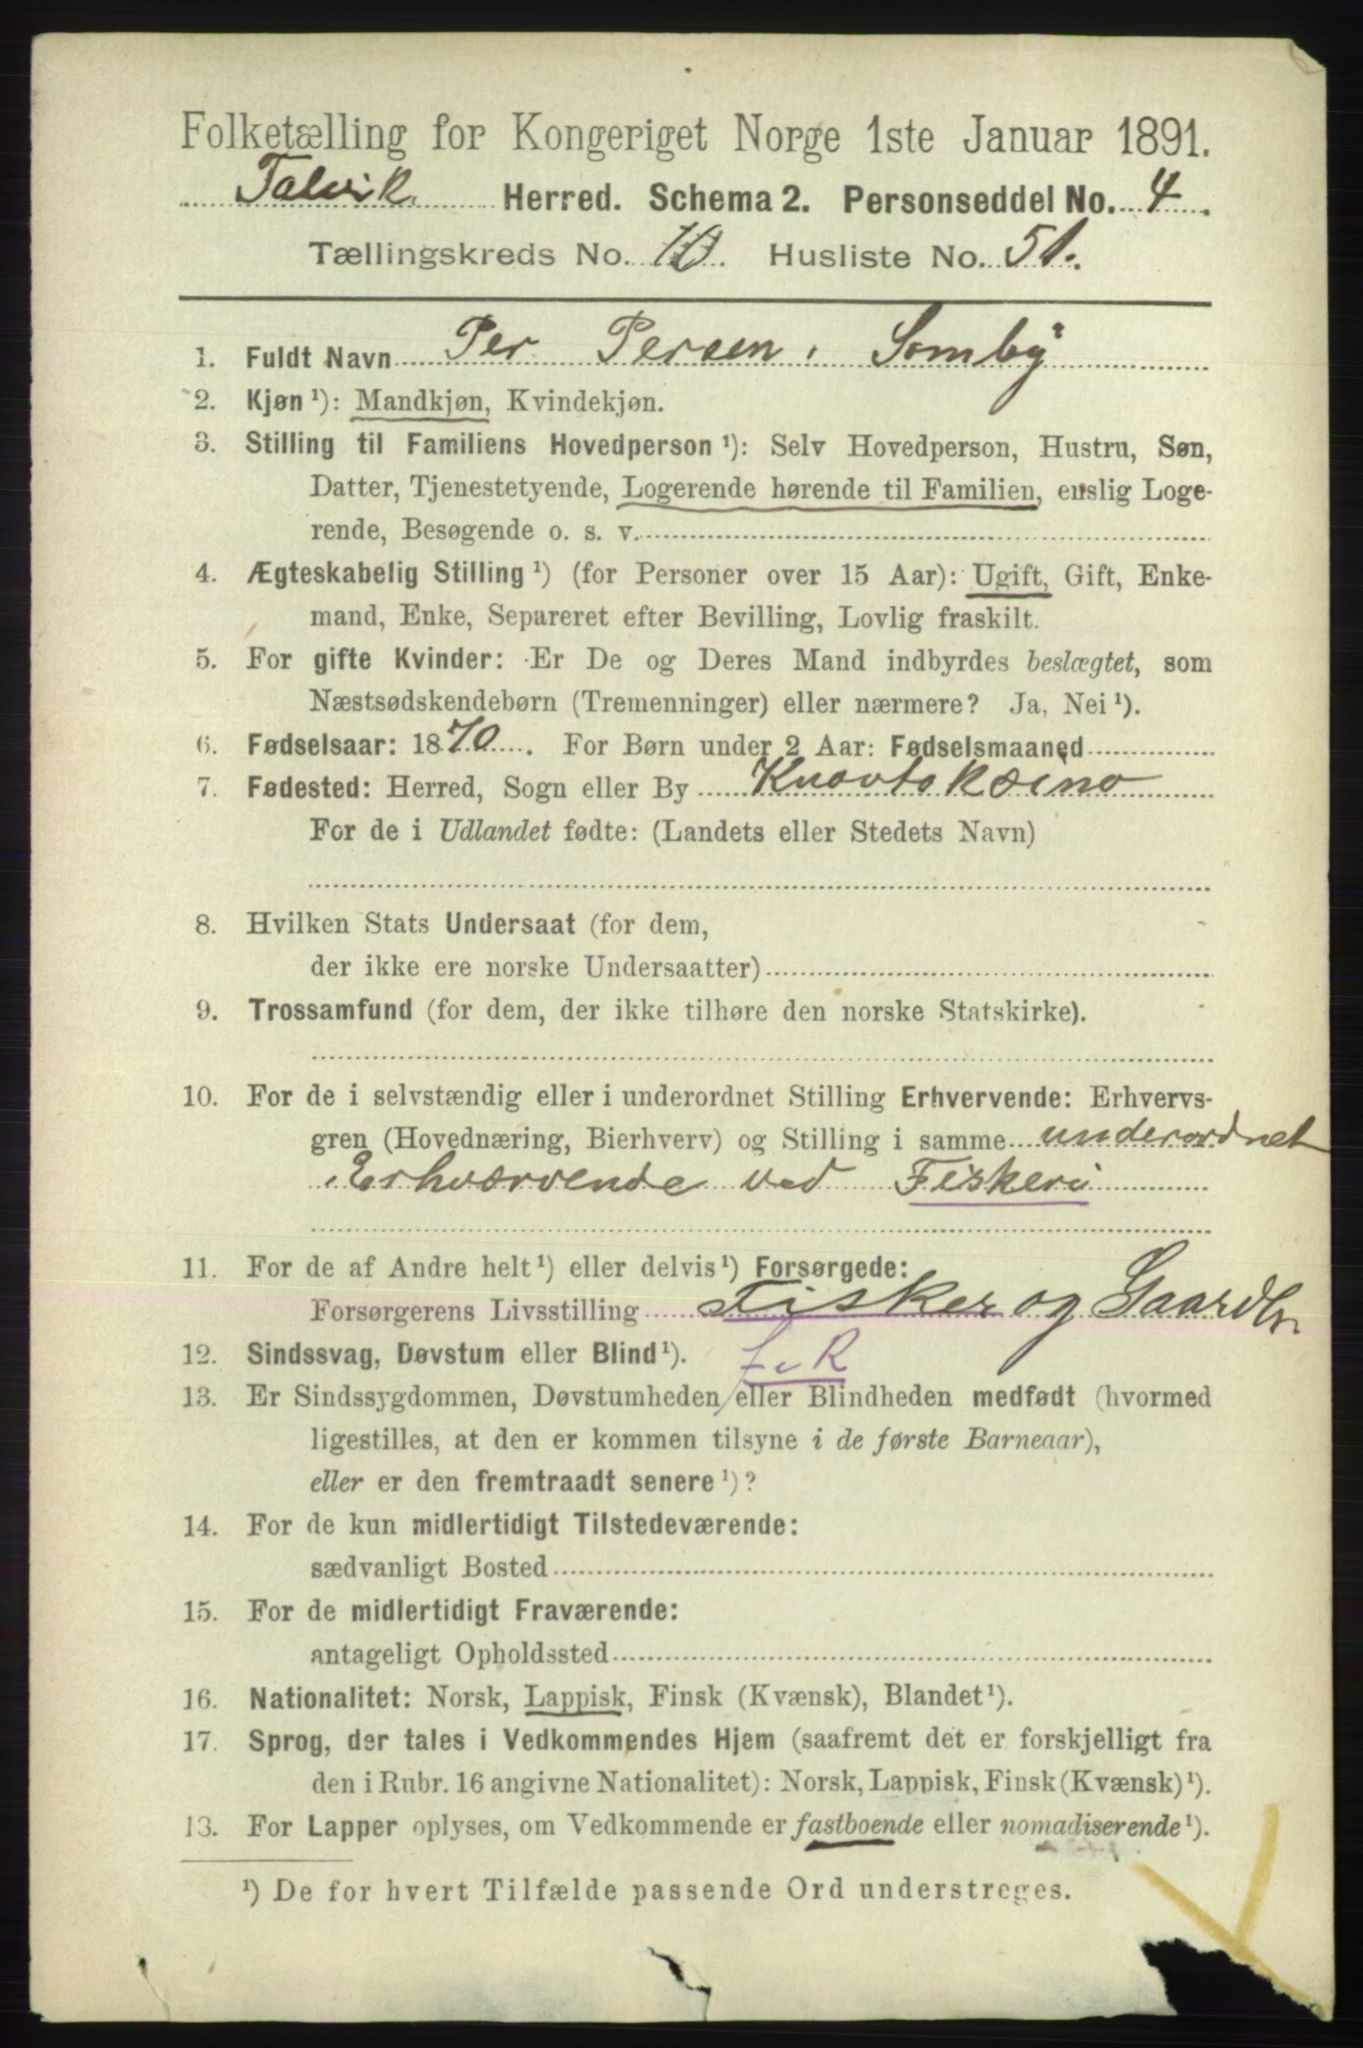 Folketælling for Kongeriget Norge 1ste Januar 1891.
Talvik Herred. Schema 2. Personseddel No. 4.
Tællingskreds No. 10. Husliste No. 51.
1. Fuldt Navn Per Persen Somby
2. Kjøn ¹): Mandkjøn, Kvindekjøn.
3. Stilling til Familiens Hovedperson ¹): Selv Hovedperson, Hustru, Søn,
Datter, Tjenestetyende, Logerende hørende til Familien, enslig Loge-
rende, Besøgende o. s. v.
4. Ægteskabelig Stilling ¹) (for Personer over 15 Aar): Ugift, Gift, Enke-
mand, Enke, Separeret efter Bevilling, Lovlig fraskilt.
5. For gifte Kvinder: Er De og Deres Mand indbyrdes beslægtet, som
Næstsødskendebørn (Tremenninger) eller nærmere? Ja, Nei ¹).
6. Fødselsaar: 1870. For Børn under 2 Aar: Fødselsmaaned
7. Fødested: Herred, Sogn eller By Kuovtokæino
For de i Udlandet fødte: (Landets eller Stedets Navn)
8. Hvilken Stats Undersaat (for dem,
der ikke ere norske Undersaatter)
9. Trossamfund (for dem, der ikke tilhøre den norske Statskirke).
10. For de i selvstændig eller i underordnet Stilling Erhvervende: Erhvervs-
gren (Hovednæring, Bierhverv) og Stilling i samme underordnet
Erhværvende ved Fiskeri
11. For de af Andre helt ¹) eller delvis ¹) Forsørgede:
Forsørgerens Livsstilling Fisker og Gaardbr.
12. Sindssvag, Døvstum eller Blind ¹).
13. Er Sindssygdommen, Døvstumheden eller Blindheden medfødt (hvormed
ligestilles, at den er kommen tilsyne i de første Barneaar),
eller er den fremtraadt senere ¹)?
14. For de kun midlertidigt Tilstedeværende:
sædvanligt Bosted
15. For de midlertidigt Fraværende:
antageligt Opholdssted
16. Nationalitet: Norsk, Lappisk, Finsk (Kvænsk), Blandet ¹).
17. Sprog, der tales i Vedkommendes Hjem (saafremt det er forskjelligt fra
den i Rubr. 16 angivne Nationalitet): Norsk, Lappisk, Finsk (Kvænsk) ¹).
13. For Lapper oplyses, om Vedkommende er fastboende eller nomadiserende ¹).
¹) De for hvert Tilfælde passende Ord understreges.